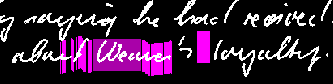 by saying he had received
about Weaver's loyalty